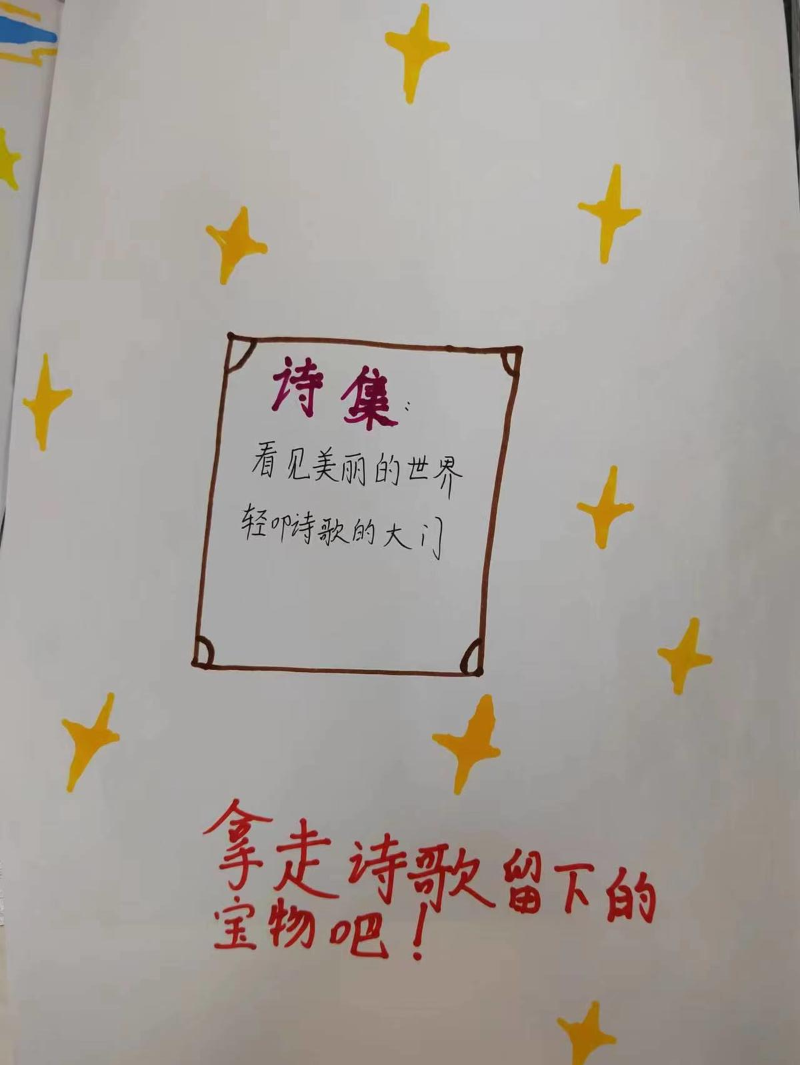 诗集:
看见美丽的世界
轻叩诗歌的大门
拿走诗歌留下的
宝物吧！